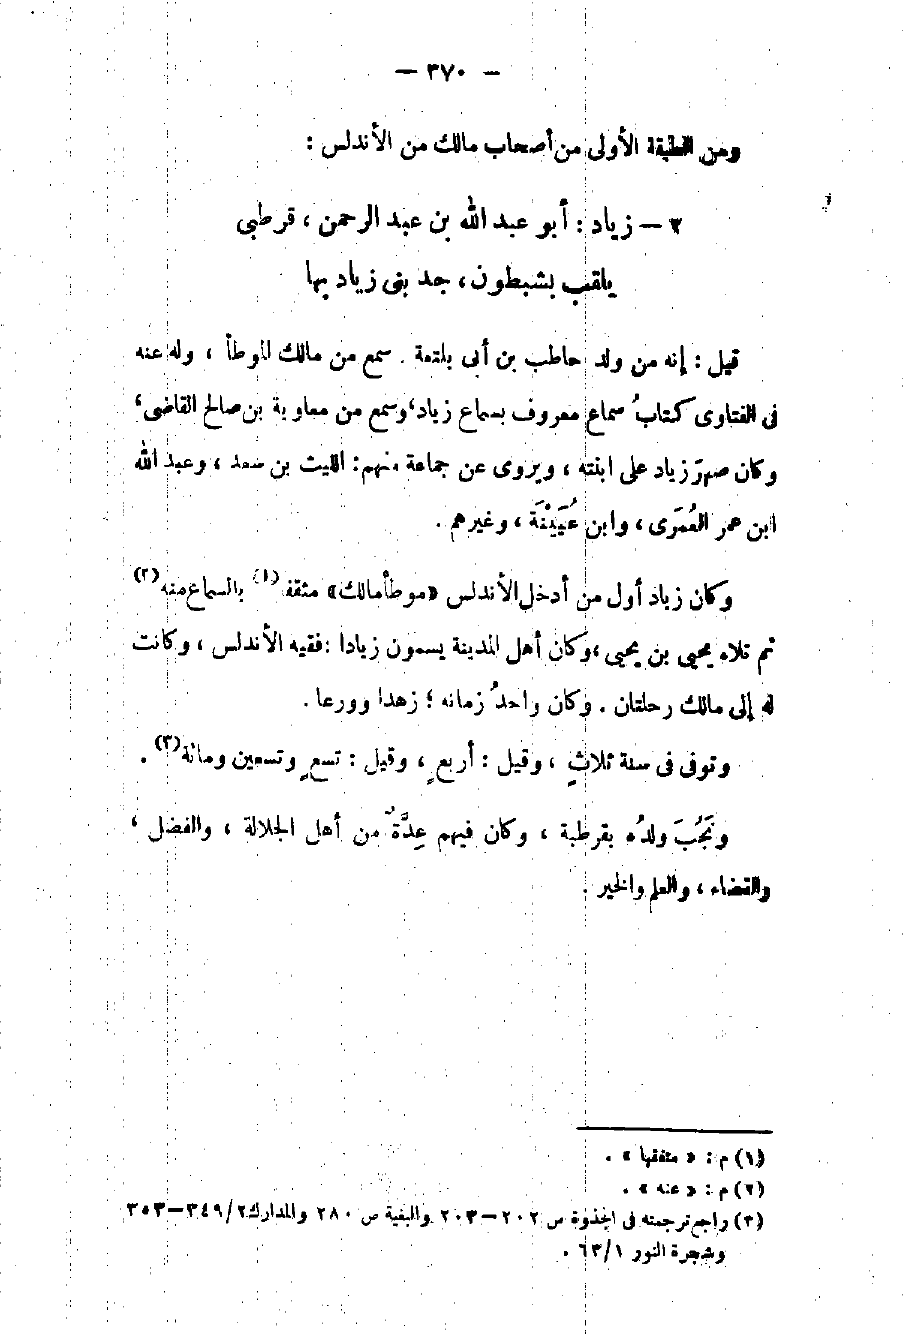 — ٣٧٠ —
ومن الطبقة الأولى من أصحاب مالك من الأندلس :
٣ — زياد : أبو عبد الله بن عبد الرحمن ، قرطبى
يلقب بشبطون ، جد بنى زياد بها
قيل : إنه من ولد حاطب بن أبى بلتعة . سمع من مالك الموطأ ، وله عنه
فى الفتاوى كتابُ سماع معروف بسماع زياد، وسمع من معاوية بن صالح القاضى ،
وكان صهرَ زياد على ابنته ، ويروى عن جماعة منهم : الليث بن سعد ، وعبد الله
ابن عمر العُمَرى ، وابن عُيَيْنَة ، وغيرهم .
وكان زياد أول من أدخل الأندلس «موطأ مالك» مثقفا (١) بالسماع منه (٢)
ثم تلاه يحيى بن يحيى ، وكان أهل المدينة يسمون زيادا : فقيه الأندلس ، وكانت
له إلى مالك رحلتان . وكان واحدُ زمانه ؛ زهدا وورعا .
وتوفى فى سنة ثلاثٍ ، وقيل : أربعٍ ، وقيل : تسعٍ وتسعين ومائة (٣) .
ونَجُبَ ولدُه بقرطبة ، وكان فيهم عِدَّةٌ من أهل الجلالة ، والفضل ،
والقضاء ، والعلم والخير .
(١) م : « متفقها » .
(٢) م : « عنه » .
(٣) راجع ترجمته فى الجذوة ص ٢٠٢ — ٢٠٣ والبغية ص ٢٨٠ والمدارك ٢/ ٣٤٩ — ٣٥٣
وشجرة النور ١/ ٦٣ .